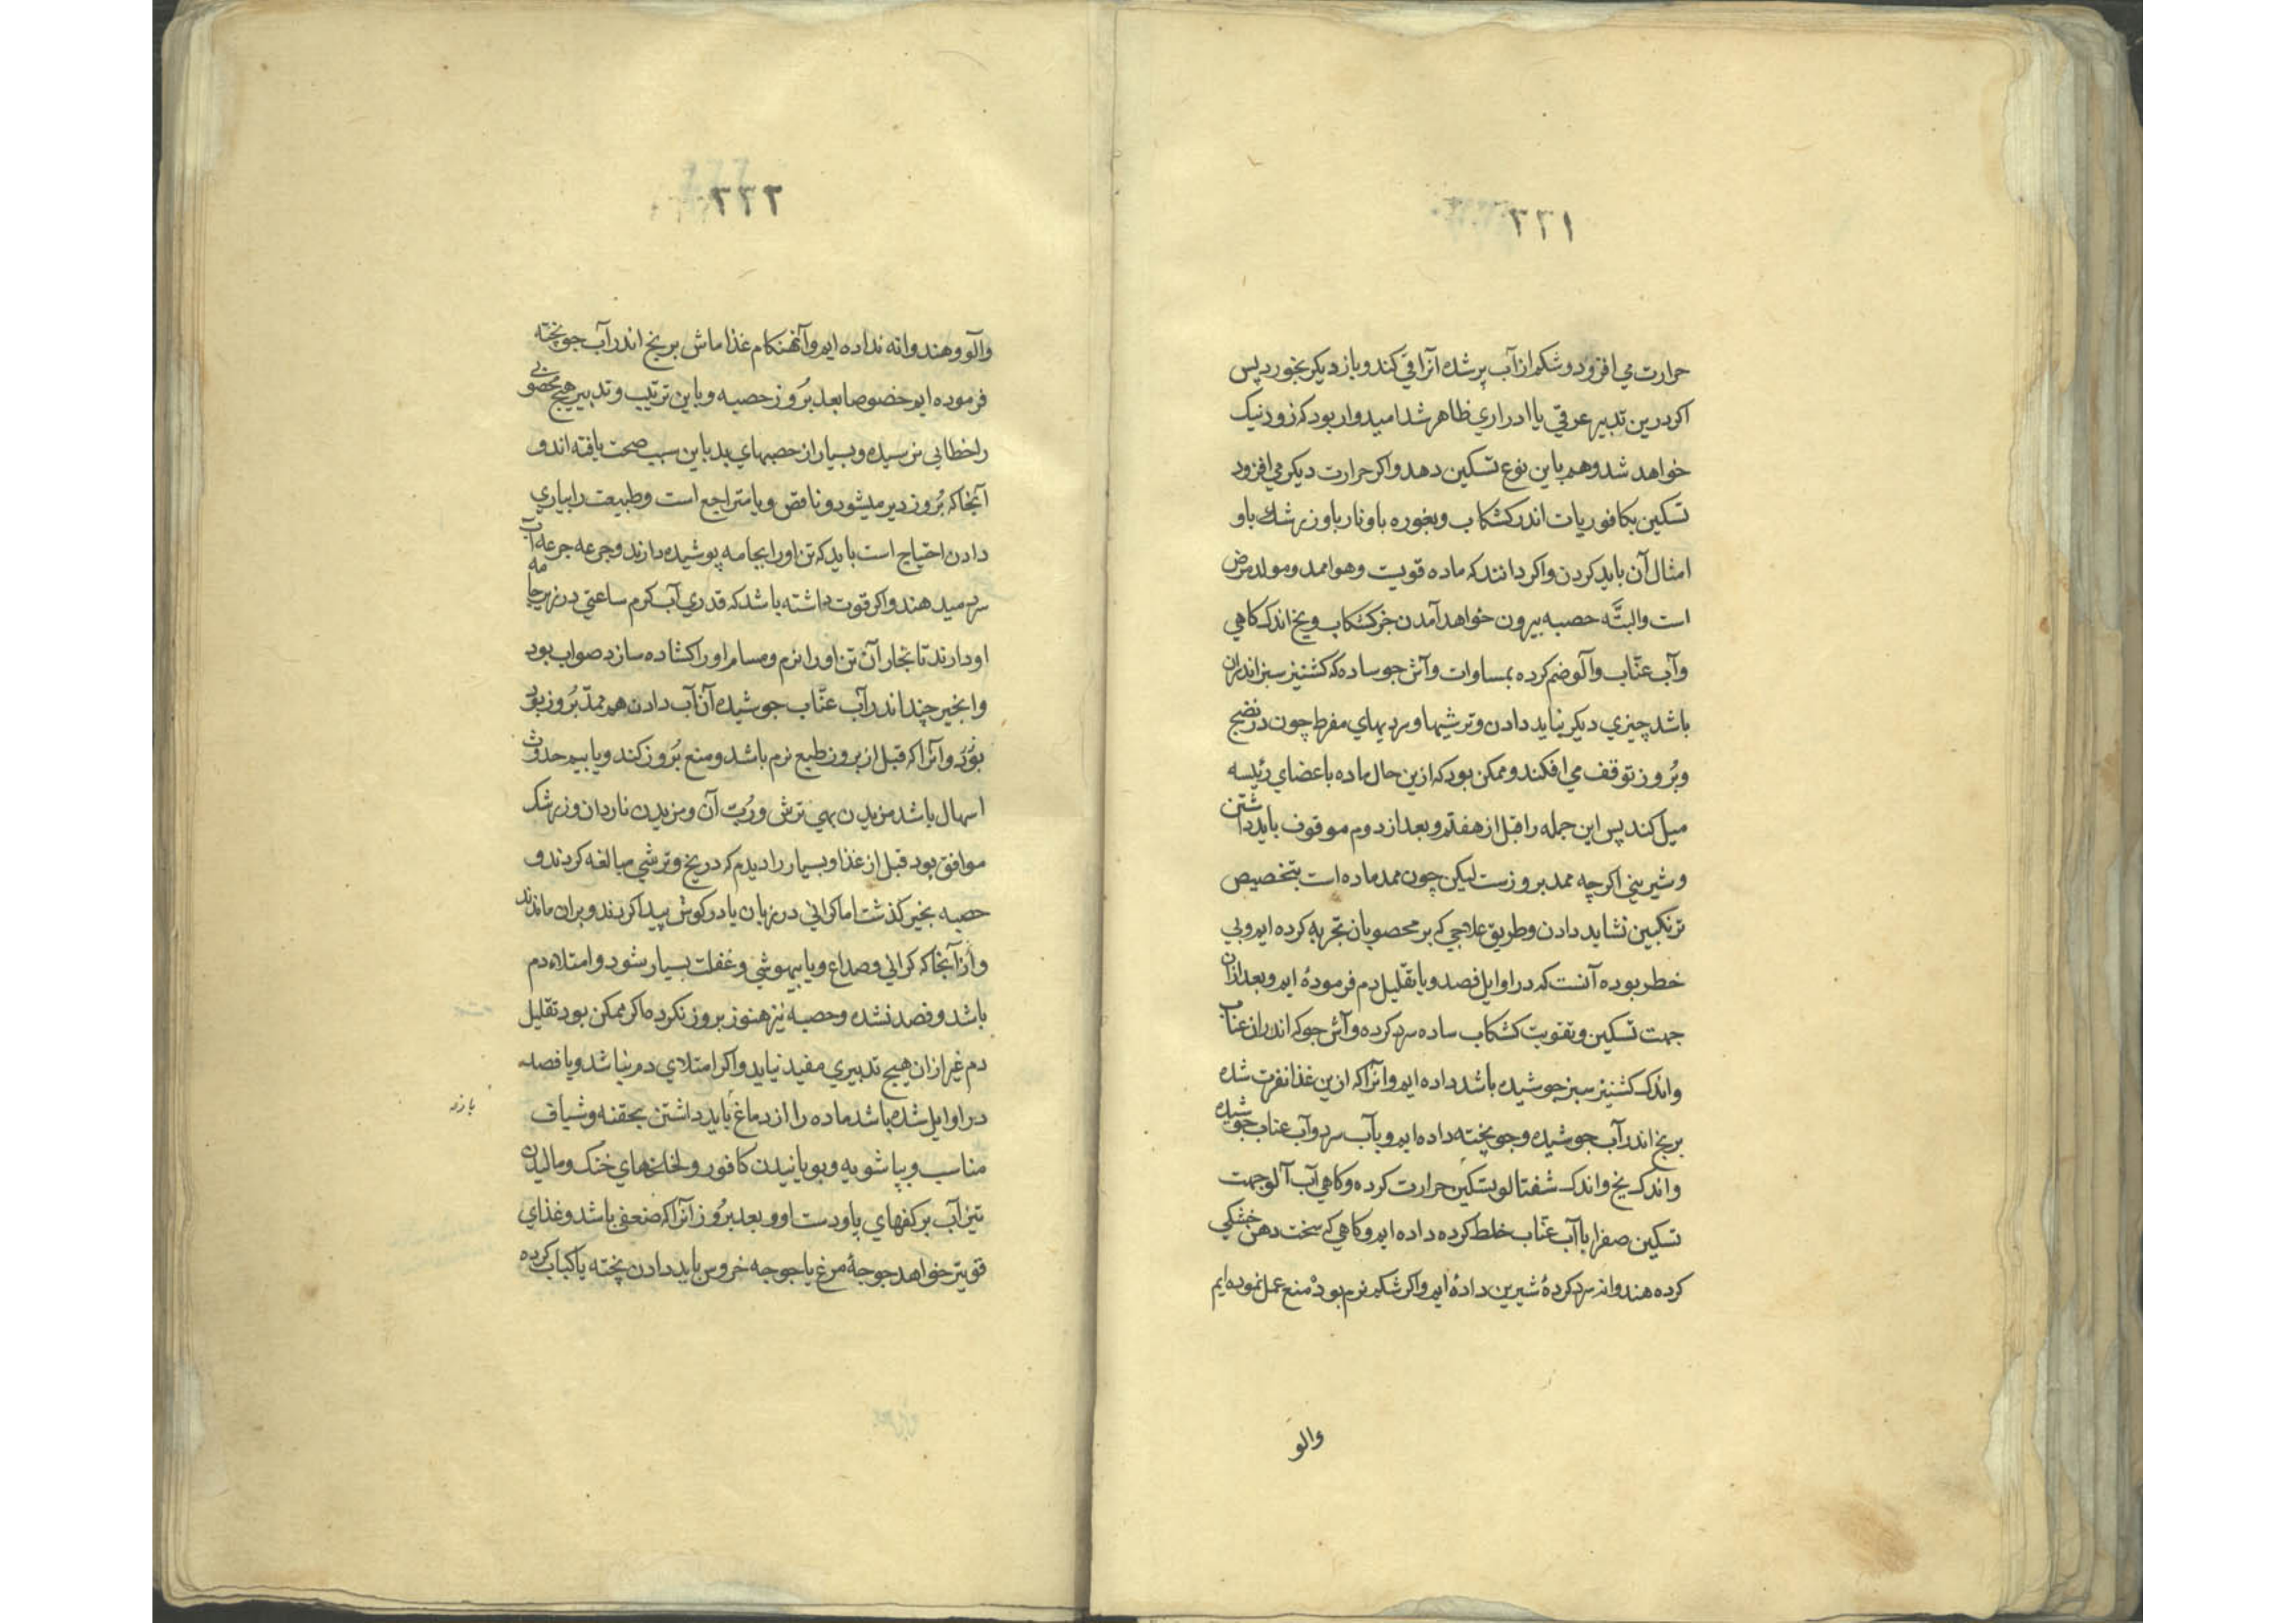 ٢٣١
حرارت می افزود و شکم از آب پر شده آنرا قی کند و باز دیکر بخورد پس
اکر درین تدبیر عرقی یا ادراری ظاهر شد امیدوار بود که زود نیک
خواهد شد و هم باین نوع تسکین دهد و اکر حرارت دیکر می افزود
تسکین بکافوریات اندر کشکاب و بغوره با و نار با و زرشک با و
امثال آن باید کردن و اکر دانند که ماده قویست و هوا ممد و مولد مرض
است و البتّه حصبه بیرون خواهد آمدن جز کشکاب و یخ اندک کاهی
و آب عنّاب و آلو ضم کرده بمساوات و آش جو ساده که کشنیز سبز اندران
باشد چیزی دیکر نباید دادن و ترشیها و سردیهای مفرط چون در نضج
و بُروز توقف می افکند و ممکن بود که ازین حال ماده باعضای رئیسه
میل کند پس این جمله را قبل از هفتم و بعد از دوم موقوف باید داشتن
و شیرینی اکرچه ممد بروزست لیکن چون ممد ماده است بتخصیص
ترنکبین نشاید دادن و طریق علاجی که بر محصوبان تجربه کرده ایم و بی
خطر بوده آنست که در اوایل فصد و یا تقلیل دم فرموده ایم و بعد ازان
جهت تسکین و تقویت کشکاب ساده سرد کرده و آش جو که اندران عناب
و اندک کشنیز سبز جوشیده باشد داده ایم و آنرا که ازین غذا نفرت شده
برنج اندر آب جوشیده و جو پخته داده ایم و بآب سرد و آب عناب جوشیده
و اندک یخ و اندک شفتالو تسکین حرارت کرده و کاهی آب آلو جهت
تسکین صفرا با آب عنّاب خلط کرده داده ایم و کاهی که سخت دهن خشکی
کرده هندوانه سرد کردۀ شیرین داده ایم و اکر شکم نرم بود منع عمل نموده ایم
والو
٢٣٢
والو و هندوانه نداده ایم و آنهنکام غذا ماش برنج اندر آب جو پخته
فرموده ایم خصوصا بعد بُروز حصبه و باین ترتیب و تدبیر هیچ محصوبی
را خطایی نرسیده و بسیار از حصبهای بد باین سبب صحت یافته اند و
آنجا که بُروز دیر میشود و ناقص و یا متراجع است و طبیعت را بیاری
دادن احتیاج است باید که تن او را بجامه پوشیده دارند و جرعه جرعه آب
سرد میدهند و اکر قوت داشته باشد که قدری آب کرم ساعتی در زیر جامه
او دارند تا بخار آن تن او را نرم و مسام او را کشاده سازد صواب بود
و انجیر چند اندر آب عنّاب جوشیده آن آب دادن هم ممدّ بُروز بود
بُوَد و آنرا که قبل از بروز طبع نرم باشد و منع بُروز کند و یا بیم حدوث
اسهال باشد مزیدن بهی ترش و رُبّ آن و مزیدن ناردان و زرشک
موافق بود قبل از غذا و بسیار را دیدم که در یخ و ترشی مبالغه کردند و
حصبه بخیر کذشت اما کرانی در زبان یا در کوش پیدا کردند و بران ماندند
و از آنجا که کرانی و صداع و یا بیهوشی و غفلت بسیار شود و امتلاء دم
باشد و فصد نشده و حصبه نیز هنوز بروز نکرده اکر ممکن بود تقلیل
دم غیر ازان هیچ تدبیری مفید نیاید و اکر امتلای دم نباشد و یا فصد
در اوایل شده باشد ماده را از دماغ باید داشتن بحقنه و شیاف
مناسب و بپاشویه و بویانیدن کافور و لخلخهای خنک و مالیدن
تیزآب بر کفهای پا و دست او و بعد بُروز آنرا که ضعفی باشد و غذای
قویتر خواهد جوجۀ مرغ یا جوجه خروس باید دادن پخته یا کباب کرده
باز